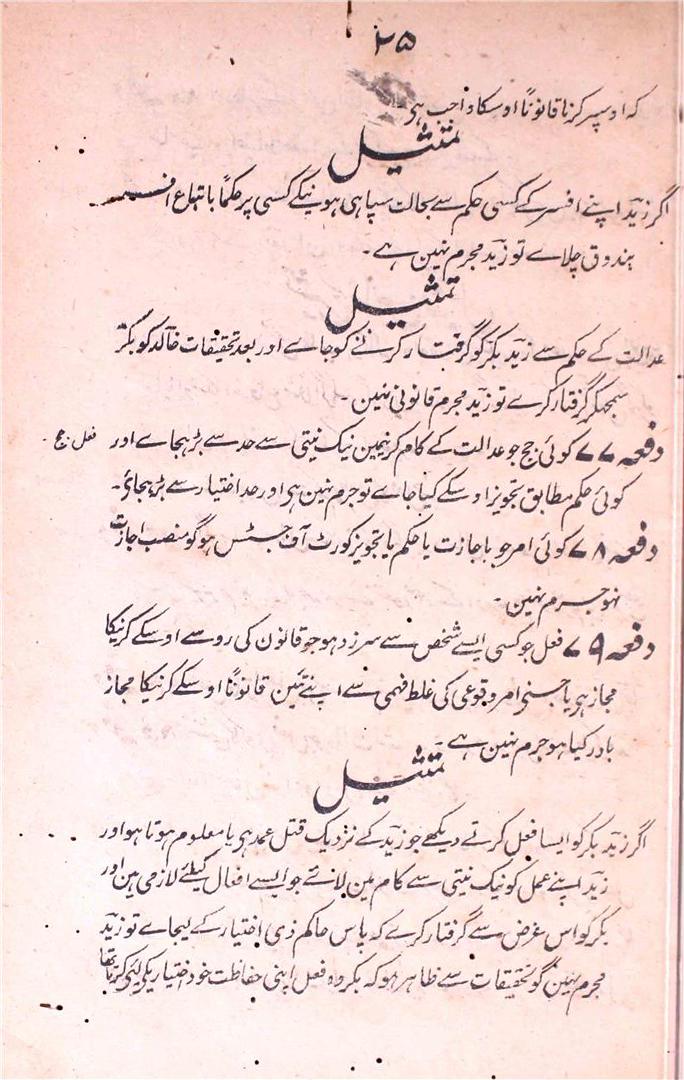 ۲۵
کہ اوسپر کرنا قانونًا اوسکا واجب ہی۔
تمثیل
اگر زید اپنے افسر کے کسی حکم سے بحالت سپاہی ہونیکے کسی پر حکمًا باتباع افسر
بندوق چلاے تو زید مجرم نہین ہے۔
تمثیل
عدالت کے حکم سے زید بکر کو گرفتار کرنے کو جاے اور بعد تحقیقات خالد کو بکر
سمجھکر گرفتار کرے تو زید مجرم قانونی نہین۔
دفعہ ۷۷ کوئی جج جو عدالت کے کام کرنیمین نیک نیتی سے حد سے بڑہجاے اور
فعل جج۔
کوئی حکم مطابق تجویز اوسکے کیا جاے تو جرم نہین ہی اور حد اختیار سے بڑہجائی۔
دفعہ ۷۸ کوئی امر جو باجازت یا حکم یا تجویز کورٹ آف جسٹس ہو گو منصب اجازت
نہو جرم نہین۔
دفعہ ۷۹ فعل جو کسی ایسے شخص سے سرزد ہو جو قانون کی روسے اوسکے کرنیکا
مجاز ہی یا جسنی امر وقوعی کی غلط فہمی سے اپنے تئین قانونًا اوسکے کرنیکا مجاز
باور کیا ہو جرم نہین ہے۔
تمثیل
اگر زید بکر کو ایسا فعل کرتے دیکھے جو زید کے نزدیک قتل عمد ہی یا معلوم ہوتا ہو اور
زید اپنے عمل کو نیک نیتی سے کام مین لائے جو ایسے افعال کیلئے لازمی ہین اور
بکر کو اس غرض سے گرفتار کرے کہ پاس حاکم ذی اختیار کے لیجاے تو زید
مجرم نہین گو تحقیقات سے ظاہر ہو کہ بکر وہ فعل اپنی حفاظت خود اختیاریکی لئی کرتا تھا